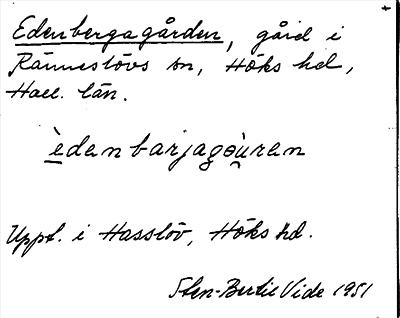 Edenbergagården, gård i
Ränneslövs sn, Höks hd,
Hall. län.
èdanbarjagəùran
Uppt. i Hasslöv, Höks hd.
Sten-Bertil Vide 1951